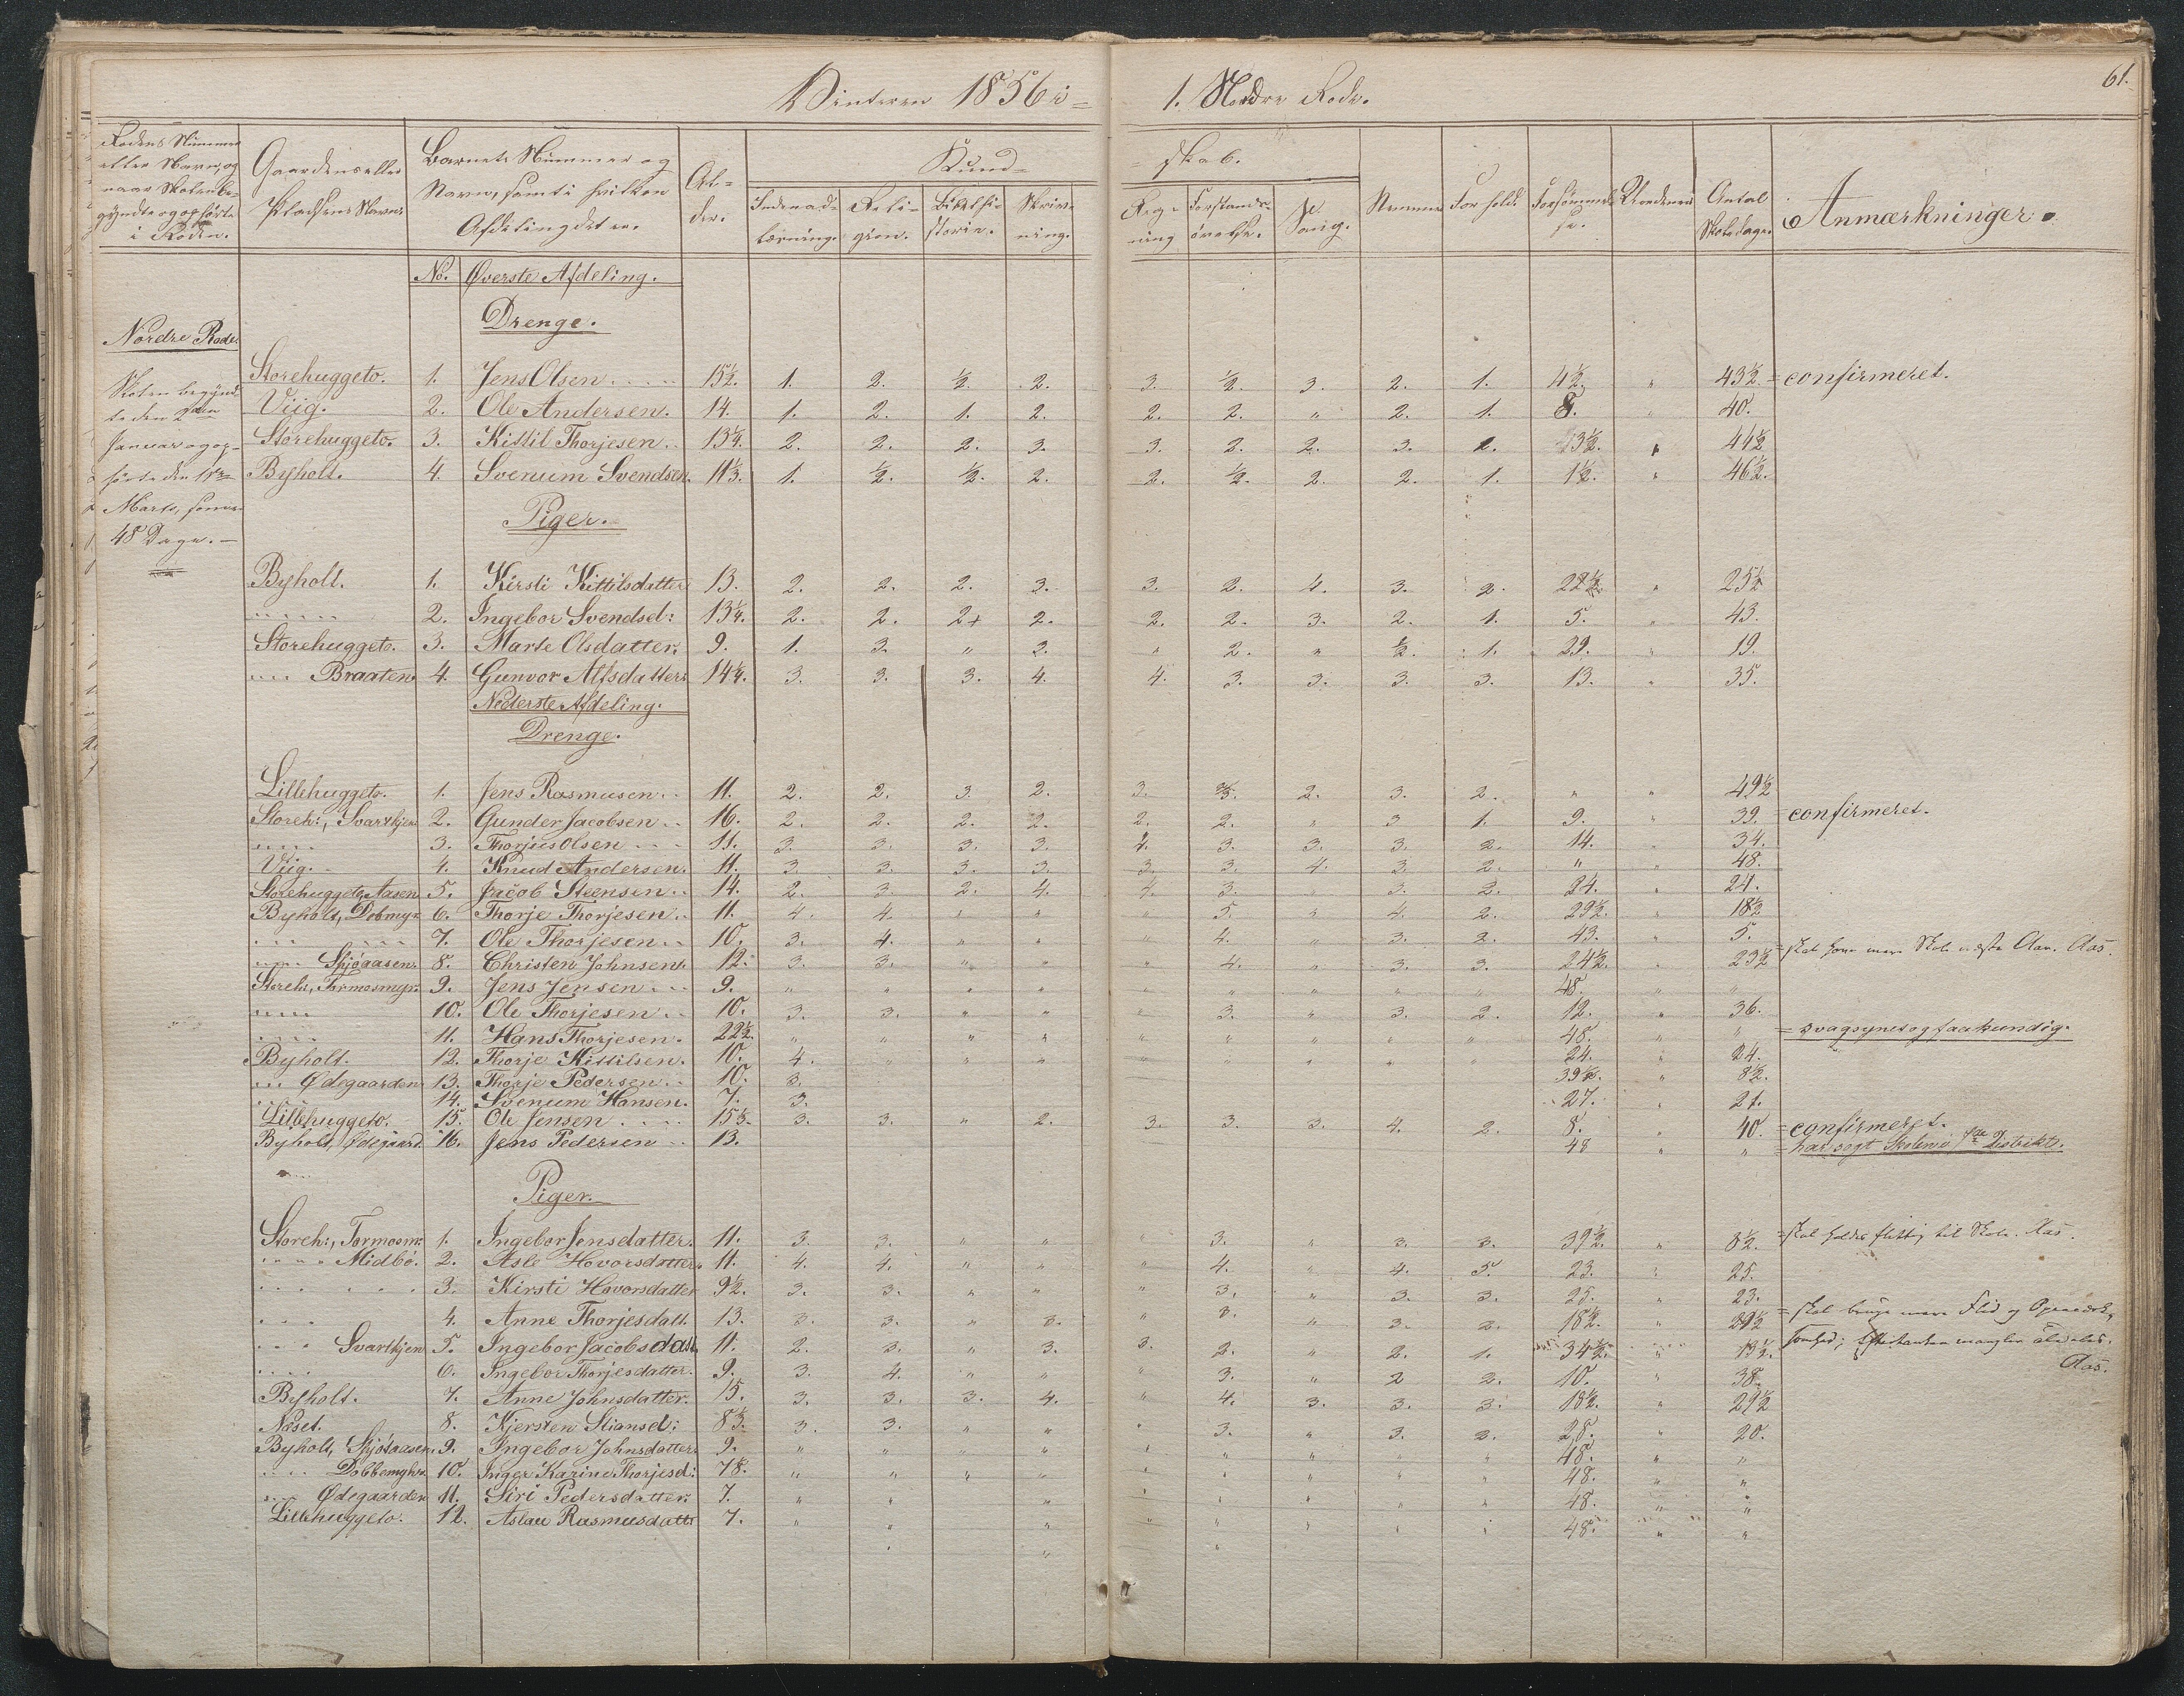 Vinteren 1856 i = 1. Nordre Rode. 61.
Rodens Nummer eller Navn, og naar Skolen begyndte og ophørte i Roden. | Gaardens eller Pladsens Navn. | Barnets Nummer og Navn, samt i hvilken Afdeling det er. | Alder. | Kund= =skab. | Nemme | Forhold. | Forsømmelse. | Antal Skoledage. | Anmærkninger.
Indenadslæsning. | Religion. | Bibelhistorie. | Skrivning. | Regning | Forstandsøvelse. | Sang.
No. Øverste Afdeling.
Drenge.
Nordre Rode.
Skolen begyndte den 2den Januar og ophørte den Marts, 48 Dage. —
Storehuggeto. 1. Jens Olsen 15½. 1. 2. ½. 2. 3. ½. 3. 2. 1. 4½. " 43½. = confirmeret.
Viig. 2. Ole Andersen. 14. 1. 2. 1. 2. 2. 2. " 2. 1. 8. " 40.
Storehuggeto. 3. Kittil Thorjesen. 13¼. 2. 2. 2. 3. 3. 2. 2. 3. 2. 3½. " 44½
Byholt. 4. Svenum Svendsen. 11⅓. 1. ½. ½. 2. 2. ½. 2. 2. 1. 1½. " 46½.
Piger.
Byholt. 1. Kirsti Kittilsdatter 13. 2. 2. 2. 3. 3. 2. 4. 3. 2. 22½. " 25½
" 2. Ingebor Svendsd: 13¼. 2. 2. 2+ 2. 2. 2. 3. 2. 1. 5. " 43.
Storehuggeto. 3. Marte Olsdatter. 9. 1. 3. " 2. " 2. " ½. 1. 29. " 19.
" Braaten 4. Gunvor Alfsdatter. 14¼. 3. 3. 3. 4. 4. 3. 3. 3. 3. 13. " 35.
Nederste Afdeling.
Drenge.
Lillehuggeto. 1. Jens Rasmusen 11. 2. 2. 3. 2. 3. ⅔. 2. 3. 2. " " 49½
Storeh:, Svartkjen 2. Gunder Jacobsen 16. 2. 2. 2. 2. 2. 2. " 3 1. 9. " 39. = confirmeret.
" 3. Thorjus Olsen 11. 3. 3. 3. 3. 4. 3. 3. 3. 2. 14. " 34.
Viig. 4. Knud Andersen. 11. 3. 3. 3. 3. 3. 3. 4. 3. 2. " " 48.
Storehuggeto, Aasen 5. Jacob Steensen 14. 2. 3. 2. 4. 4. 3. " 3. 2. 24. " 24.
Byholt, Dobmyr 6. Thorje Thorjesen 11. 4. 4. " " " 5. " 4. 2. 29½. " 18½
" 7. Ole Thorjesen 10. 3. 4. " " " 4. " 3. 2. 43. " 5.
" Spjøaasen. 8. Christen Johnsen. 12. 3. 3. " " " 4. " 3. 3. 24½. " 23½ = skal have mere Skole næste Aar. Aas.
Storeh:, Tormosmyr. 9. Jens Jensen 9. " " " " " " " " " 48. " "
" 10. Ole Thorjesen 10. 3. 3. " " " 3. " 3. 2. 12. " 36.
" 11. Hans Thorjesen. 22½. " " " " " " " " " 48. " " = svagsynet og faakundig.
Byholt. 12. Thorje Kittilsen. 10. 4. " " " " " " " " 24. " 24.
" Ødegaarden 13. Thorje Pedersen 10. 3. 39½. " 8½.
14. Svenum Hansen. 7. 3. 27. " 21.
Lillehuggeto. 15. Ole Jensen 15½. 3. 3. " 2. 3. 3. 3. 4. 2. 8. " 40. = confirmeret.
Byholt, Ødegaard. 16. Jens Pedersen 13. 48 " " = har søgt Skolen i 1ste Distrikt.
Piger.
Storeh:, Tormosm: 1. Ingebor Jensdatter. 11. 3. 3. " " " 3. " 3. 3. 39½. " 8½. = skal holdes flittig til Skole. Aas.
" Midbø. 2. Asle Hovorsdatter. 11. 4. 4. " " " 4. " 4. 5. 23. " 25.
" 3. Kirsti Hovorsdatter 9½. 3. 3. " " " 3. " 3. 3. 25. " 23.
" 4. Anne Thorjesdatt. 13. 3. 3. " 3. " 3. " 3. 2. 18½. " 29½ = skal bruge mere Flid og Opmærk-
" Svartkjen 5. Ingebor Jacobsdatt. 11. 2. 3. " 3. 3. 2. " 2. 1. 34½. " 13½. somhed; Eftertanken mangler aldeles.
" 6. Ingebor Thorjesdatter. 9. 3. 4. " " " 3. " 2 2. 10. " 38. Aas.
Byholt. 7. Anne Johnsdatter. 15. 3. 3. 3. 4. " 4. 3. 3. 3. 18½. " 29½
Næset. 8. Kjersten Stiansd: 8⅓. 3. 3. " " " 3. " 3. 2. 28. " 20.
Byholt, Spjøtaasen. 9. Ingebor Johnsdatter. 9. " " " " " " " " " 48. " "
" Dobbemyhr. 10. Inger Karine Thorjesd: 7⅛. " " " " " " " " " 48. " "
" Ødegaarden 11. Siri Pedersdatter. 7. " " " " " " " " 48. " "
Lillehuggeto. 12. Aslau Rasmusdatt: 7. " " " " " " " " 48. " "